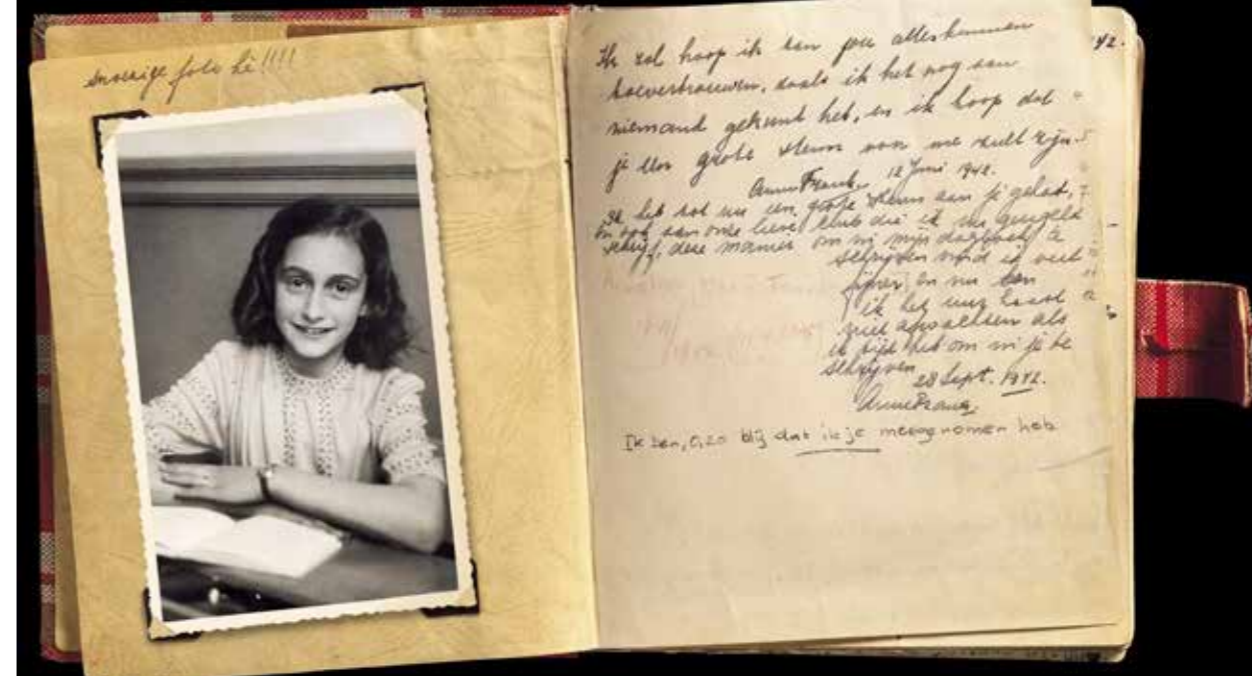 snoezige foto hè!!!!
Ik zal hoop ik aan jou alles kunnen
toevertrouwen, zoals ik het nog aan
niemand gekunt heb, en ik hoop dat
je een grote steun voor me zult zijn.
Anne Frank. 12 Juni 1942.
Ik heb tot nu een grote steun aan je gehad,
en ook aan onze lieve club die ik nu geregeld
schrijf, deze manier om in mijn dagboek te
schrijven vind ik veel
fijner en nu kan
ik het uur haast
niet afwachten als
ik tijd heb om in je te
schrijven.
28 Sept. 1942.
Anne Frank.
Ik ben, o, zo blij dat ik je meegenomen heb
42.